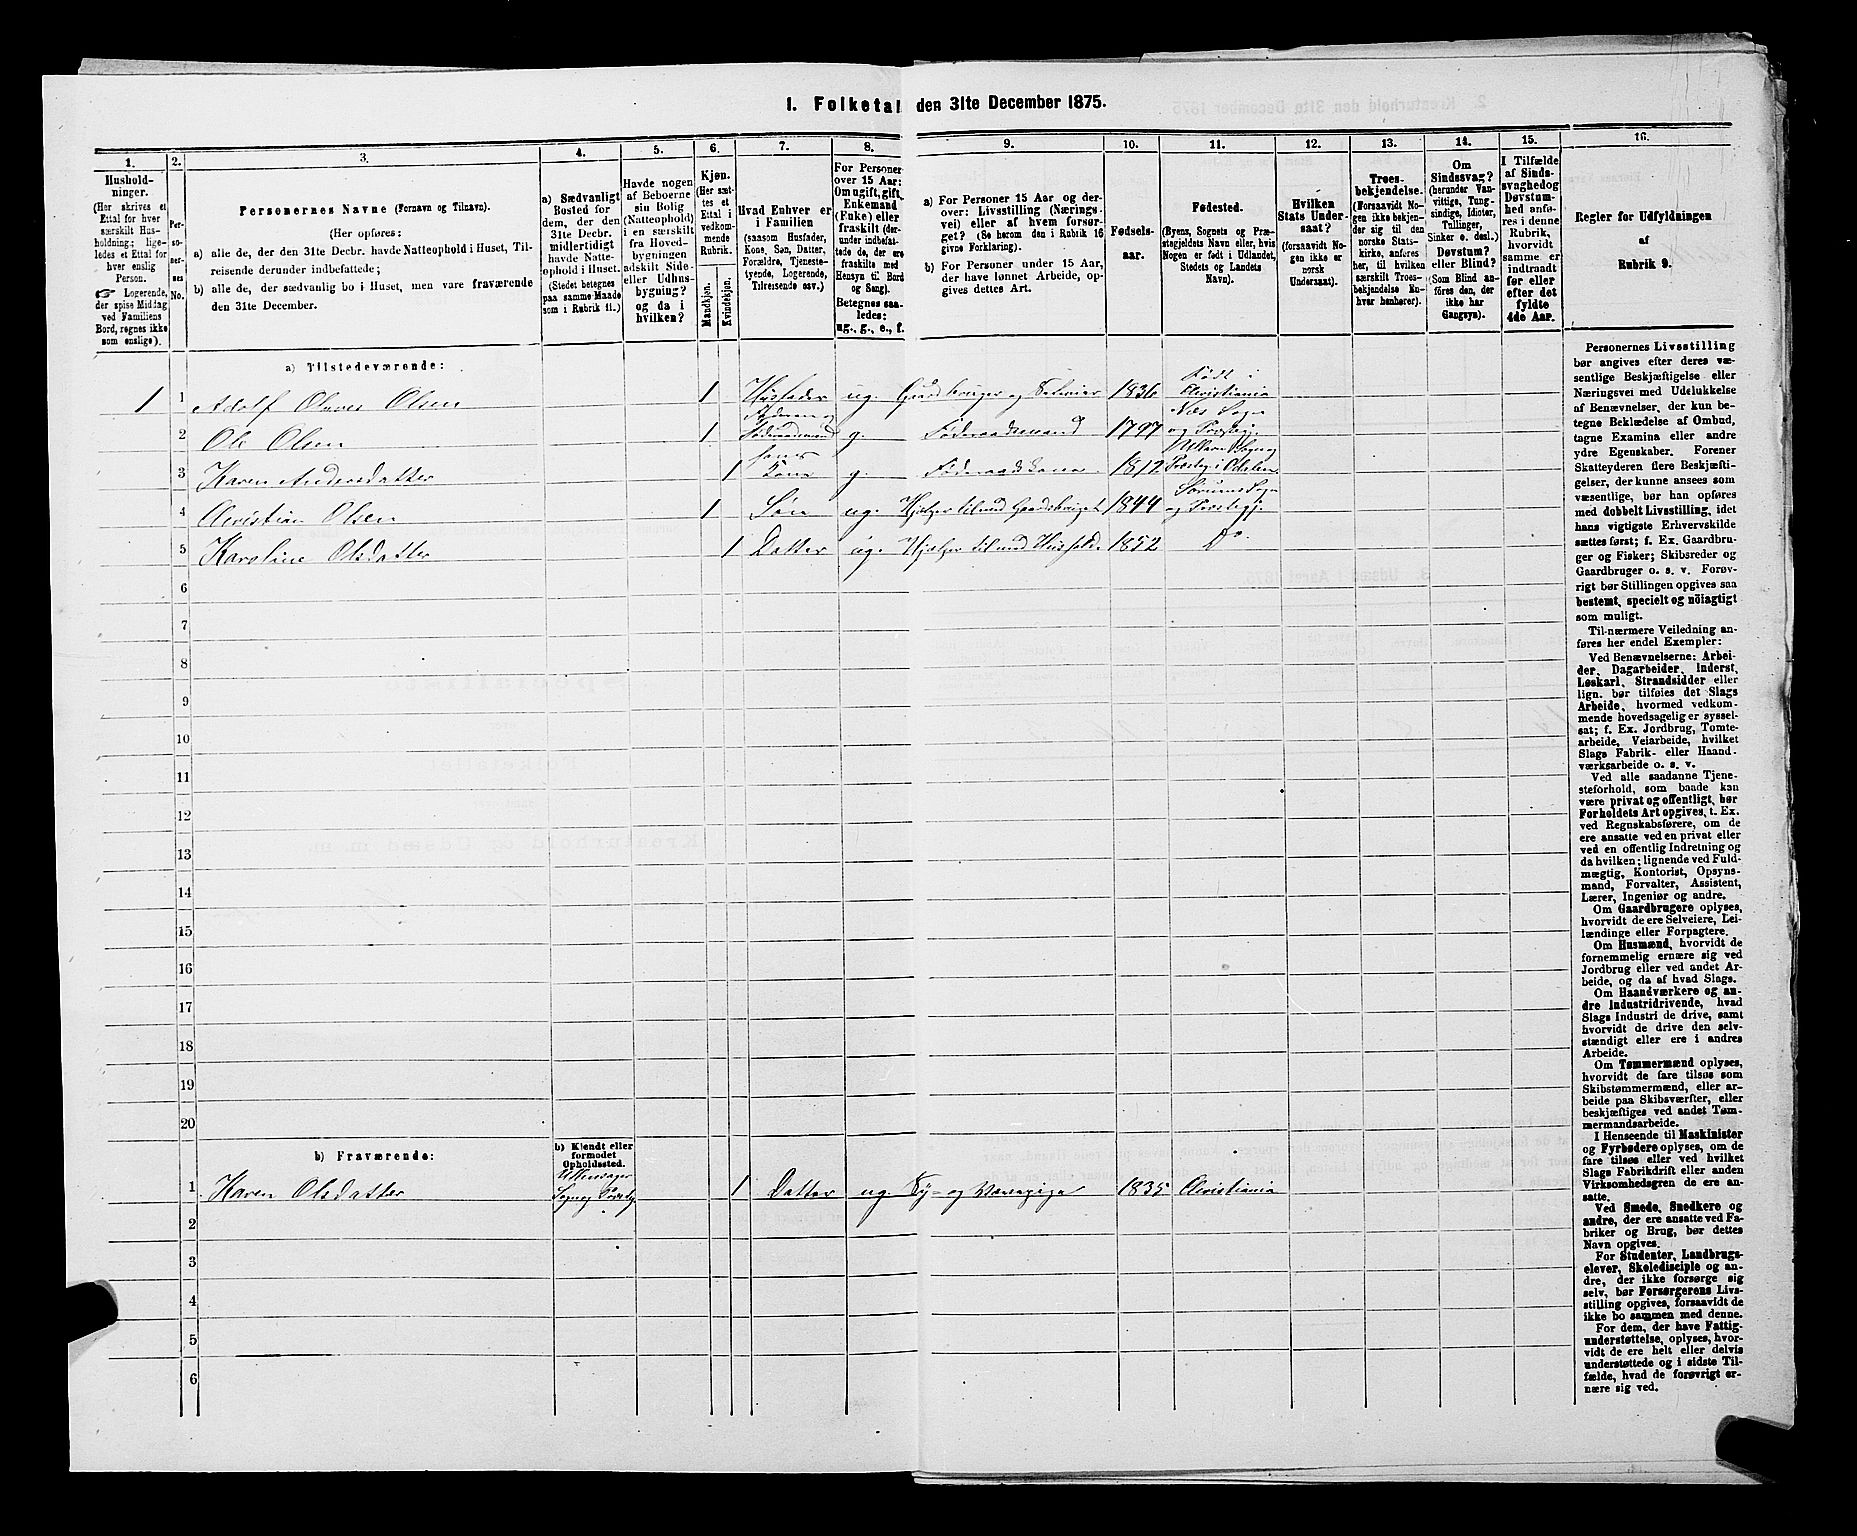 I. Folketal den 31te December 1875.
1. 2. 3. 4. 5. 6. 7. 8. 9. 10. 11. 12. 13. 14. 15. 16.
Hushold-
ninger.
(Her skrives et
Ettal for hver
særskilt Hus-
holdning; lige-
ledes et Ettal for
hver enslig
Person.
☞ Logerende,
der spise Middag
ved Familiens
Bord, regnes ikke
som enslige).
Per-
so-
ner-
nes
No.
Personernes Navne (Fornavn og Tilnavn).
(Her opføres:
a) alle de, der den 31te Decbr. havde Natteophold i Huset, Til-
reisende derunder indbefattede;
b) alle de, der sædvanlig bo i Huset, men vare fraværende
den 31te December.
a) Sædvanligt
Bosted for
dem, der den
31te Decbr.
midlertidigt
havde Natte-
ophold i Huset.
(Stedet betegnes
paa samme Maade
som i Rubrik 11.)
Havde nogen
af Beboerne
sin Bolig
(Natteophold)
i en særskilt
fra Hoved-
bygningen
adskilt Side-
eller Udhus-
bygning?
og da i
hvilken?
Kjøn.
(Her sæt-
tes et
Ettal i
vedkom-
mende
Rubrik.)
Mandkjøn.
Kvindekjøn.
Hvad Enhver er
i Familien
(saasom Husfader,
Kone, Søn, Datter,
Forældre, Tjeneste-
tyende, Logerende,
Tilreisende osv.)
For Personer
over 15 Aar:
Om ugift, gift,
Enkemand
(Enke) eller
fraskilt (der-
under indbefat-
tede de, der ere
fraskilte med
Hensyn til Bord
og Seng).
Betegnes saa-
ledes:
ug., g., e., f.
a) For Personer 15 Aar og der-
over: Livsstilling (Nærings-
vei) eller af hvem forsør-
get? (Se herom den i Rubrik 16
givne Forklaring).
b) For Personer under 15 Aar,
der have lønnet Arbeide, op-
gives dettes Art.
Fødsels-
aar.
Fødested.
(Byens, Sognets og Præ-
stegjeldets Navn eller, hvis
Nogen er født i Udlandet,
Stedets og Landets
Navn).
Hvilken
Stats Under-
saat?
(forsaavidt No-
gen ikke er
norsk
Undersaat).
Troes-
bekjendelse.
(Forsaavidt No-
gen ikke bekjen-
der sig til den
norske Stats-
kirke, anføres
her, til hvilken
særskilt Troes-
bekjendelse En-
hver henhører).
Om
Sindssvag?
(herunder Van-
vittige, Tung-
sindige, Idioter,
Tullinger,
Sinker o. desl.)
Døvstum?
eller Blind?
(Som Blind an-
føres den, der
ikke har
Gangsyn).
I Tilfælde
af Sinds-
svaghed og
Døvstum-
hed anfø-
res i denne
Rubrik,
hvorvidt
samme er
indtraadt
før eller
efter det
fyldte
4de Aar.
Regler for Udfyldningen
af
Rubrik 9.
a) Tilstedeværende:
1 1 Adolf Olaves Olsen 1 Husfader ug. Gaardbruger og Selveier 1836 Født i Christiania
2 Ole Olsen 1 Føderaadsmand g. Føderaadsmand 1797 Næs Sogn og Præstegj.
3 Karen Andersdatter 1 hans Kone g. Føderaadskone 1812
4 Christian Olsen 1 Søn ug. Hjælper til med Gaardsbruget 1844 Sørums Sogn og Præstegj.
5 Karoline Olsdatter 1 Datter ug. Hjælper til med Husholdn. 1852 Do.
6
7
8
9
10
11
12
13
14
15
16
17
18
19
20
b) Fraværende:
b) Kjendt eller
formodet
Opholdssted.
1 Karen Olsdatter Sogn og Præstgj. 1 Datter ug. Sy- og Vævepige 1835 Christiania
2
3
4
5
6
Personernes Livsstilling
bør angives efter deres væ-
sentlige Beskjæftigelse eller
Næringsvei med Udelukkelse
af Benævnelser, der kun be-
tegne Beklædelse af Ombud,
tagne Examina eller andre
ydre Egenskaber. Forener
Skatteyderen flere Beskjæfti-
gelser, der kunne ansees som
væsentlige, bør han opføres
med dobbelt Livsstilling, idet
hans vigtigste Erhvervskilde
sættes først; f. Ex. Gaardbru-
ger og Fisker; Skibsreder og
Gaardbruger o. s. v. Forøv-
rigt bør Stillingen opgives saa
bestemt, specielt og nöiagtigt
som muligt.
Til nærmere Veiledning an-
føres her endel Exempler:
Ved Benævnelserne: Arbei-
der, Dagarbeider, Inderst,
Løskarl, Strandsidder eller
lign. bør tilføies det Slags
Arbeide, hvormed vedkom-
mende hovedsagelig er syssel-
sat; f. Ex. Jordbrug, Tomte-
arbeide, Veiarbeide, hvilket
Slags Fabrik- eller Haand-
værksarbeide o. s. v.
Ved alle saadanne Tjene-
steforhold, som baade kan
være privat og offentligt, bør
Forholdets Art opgives, t. Ex.
ved Regnskabsførere, om de
ere ansatte ved en privat eller
ved en offentlig Indretning og
da hvilken; lignende ved Fuld-
mægtig, Kontorist, Opsyns-
mand, Forvalter, Assistent,
Lærer, Ingeniør og andre.
Om Gaardbrugere oplyses,
hvorvidt de ere Selveiere, Lei-
lændinge eller Forpagtere.
Om Husmænd, hvorvidt de
fornemmelig ernære sig ved
Jordbrug eller ved andet Ar-
beide, og da af hvad Slags.
Om Haandværkere og an-
dre Industridrivende, hvad
Slags Industri de drive, samt
hvorvidt de drive den selv-
stændigt eller ere i andres
Arbeide.
Om Tømmermænd oplyses,
hvorvidt de fare tilsøs som
Skibstømmermænd, eller ar-
beide paa Skibsværfter, eller
beskjæftiges ved andet Tøm-
mermandsarbeide.
I Henseende til Maskinister
og Fyrbødere oplyses, om de
fare tilsøs eller ved hvilket
Slags Fabrikdrift eller anden
Virksomhedsgren de ere an-
satte.
Ved Smede, Snedkere og
andre, der ere ansatte ved Fa-
briker og Brug, bør dettes
Navn opgives.
For Studenter, Landbrugs-
elever, Skoledisciple og an-
dre, der ikke forsørge sig
selv, bør Forsørgerens Livs-
stilling opgives, forsaavidt de
ikke bo sammen med denne.
For dem, der have Fattig-
understøttelse, oplyses, hvor-
vidt de ere helt eller delvis
understøttede og i sidste Til-
fælde, hvad de forøvrigt er-
nære sig ved.